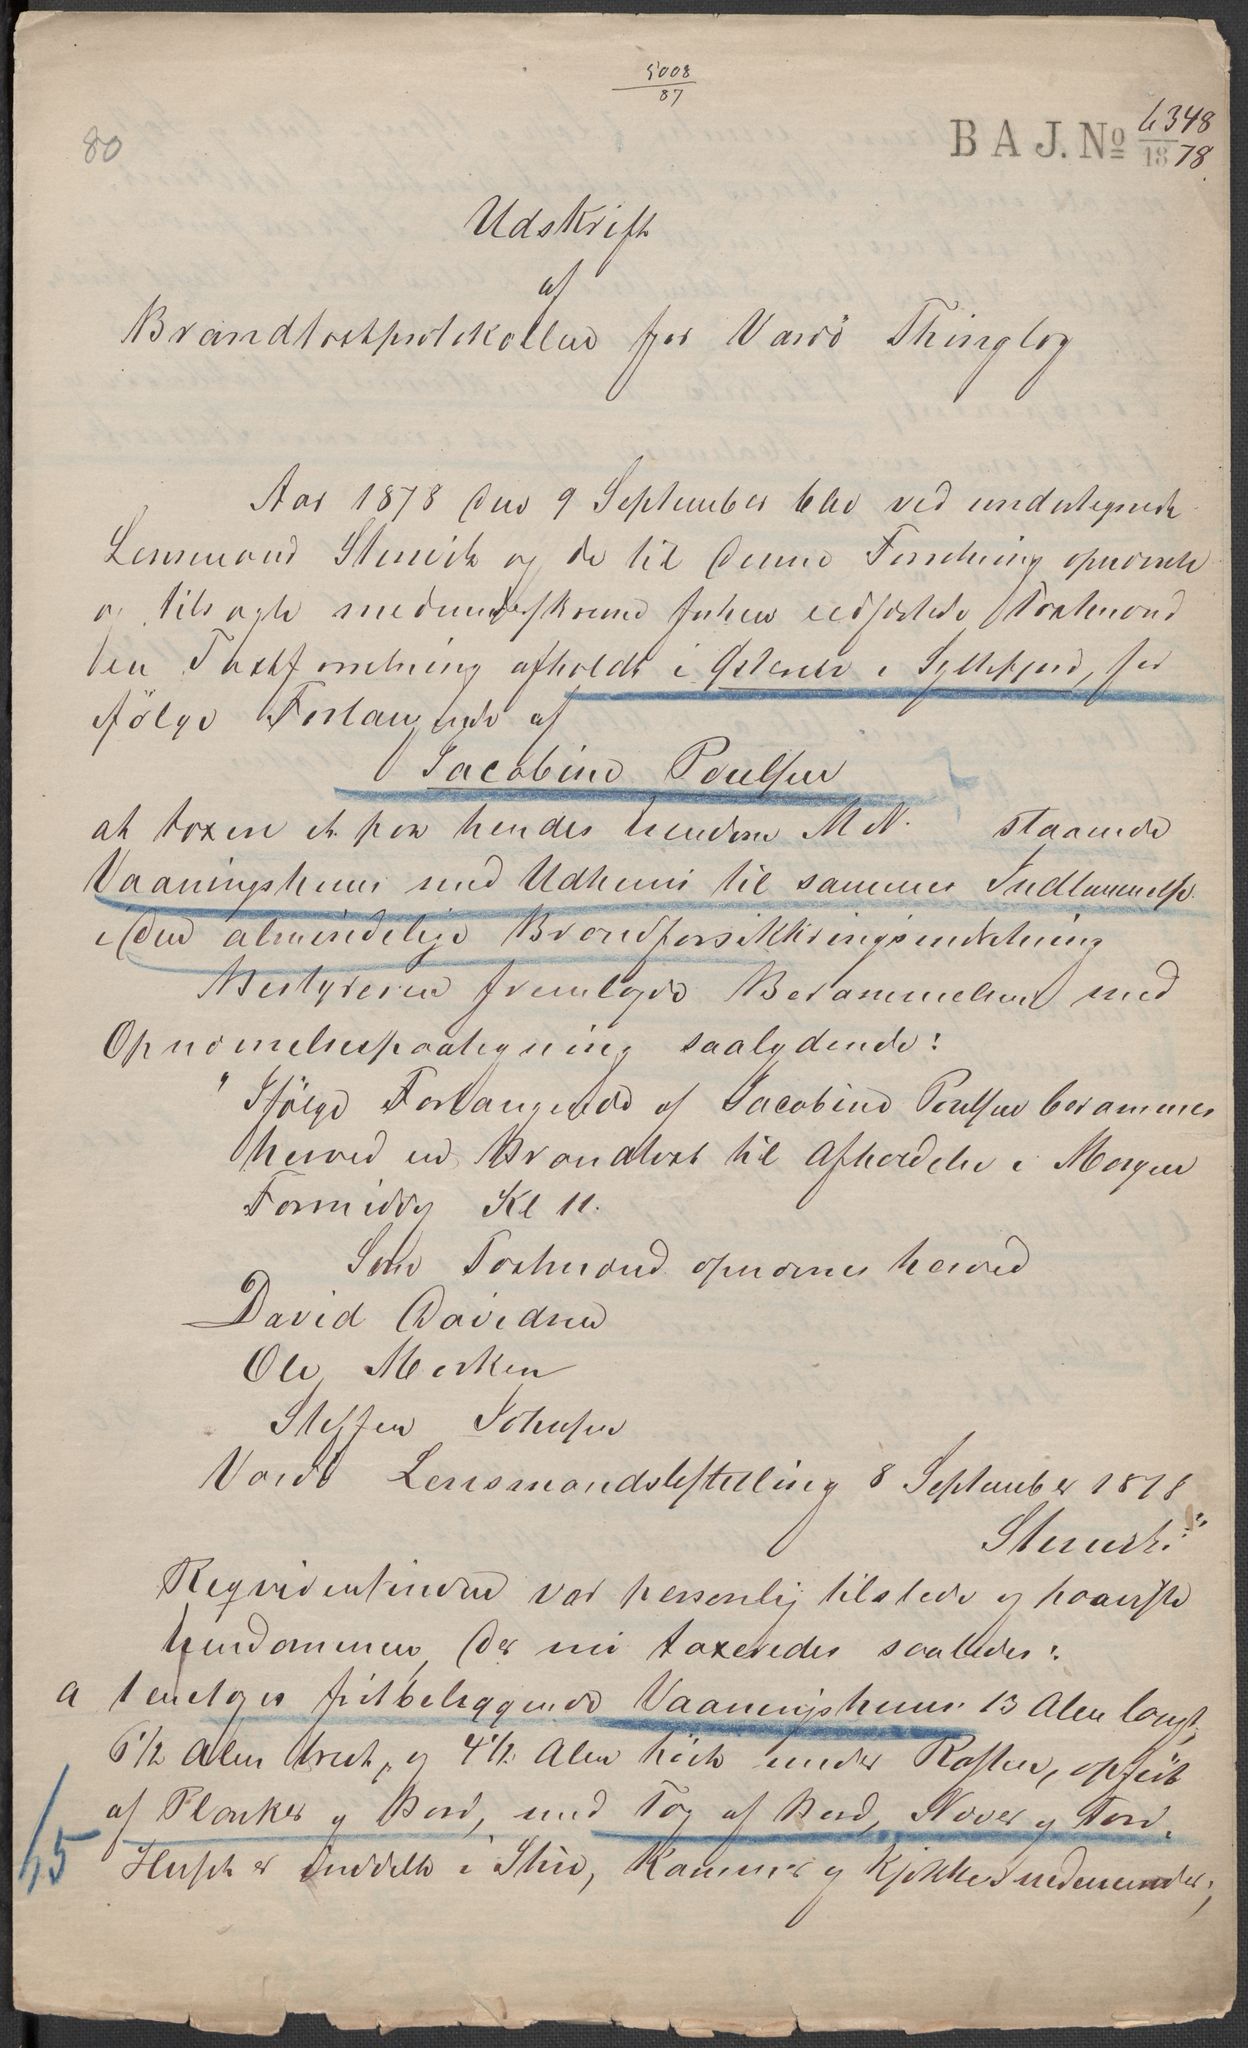 5008
87
80
B A J. No 6348
1878.
Udskrift
af
Brandtaxtprotokollen for Vardö Thinglag
Aar 1878 den 9 September blev ved undertegnede
Lensmand Stenvik og de til denne Forretning opnævnte
og tilsagte medunderskrevne forhen eedfæstede Taxtmænd
en Taxtforretning afholdt i i Syltefjord, for
ifölge Forlangende af
Jacobine Poulsen
at taxere et paa hendes Eiendom M. N. staaende
Vaaningshuus med Udhuus til sammes Indlemmelse
i den almindelige Brandforsikkringsindretning
Bestyreren fremlagde Berammelsen med
Opnævnelsespaategning saalydende:
"Ifölge Forlangende af Jacobine Poulsen berammes
herved en Brandtaxt til Afholdelse i Morgen
Formiddag Kl 11.
Som Taxtmænd opnævnes herved
David Davidsen
Ole Morken
Steffen Johnsen
Vardö Lensmandsbestilling 8 September 1878
Stenvik."
Reqvirentinden var personlig tilstede og paaviste
Eiendommen, der nu taxeredes saaledes:
a 1 enetages fritbeliggende Vaaningshuus 13 Alen langt,
6 1/2 Alen bredt, og 4 1/2 Alen höit under Raften, opfört
af Planker og Bord, med Tag af Bord, Næver og Torv.
Huset er inddelt i Stue, Kammer og Kjökken nedenunder,
15